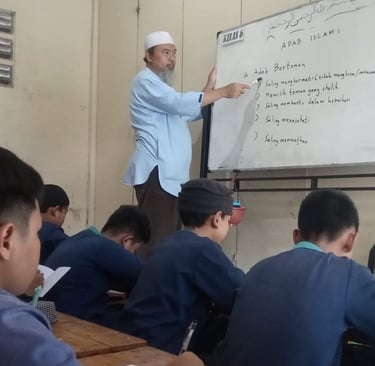 KELAS 6
بسم الله الرحمن الرحيم
ADAB ISLAMI
A. Adab Berteman
) Saling menghormati (tidak menghina/
) Memilih teman yang sholih
) Saling membantu dalam kebaikan
) Saling menasehati
) Saling memaafkan